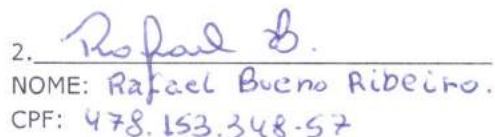 2. Rafael B.
NOME: Rafael Bueno Ribeiro.
CPF: 478.153.348-57